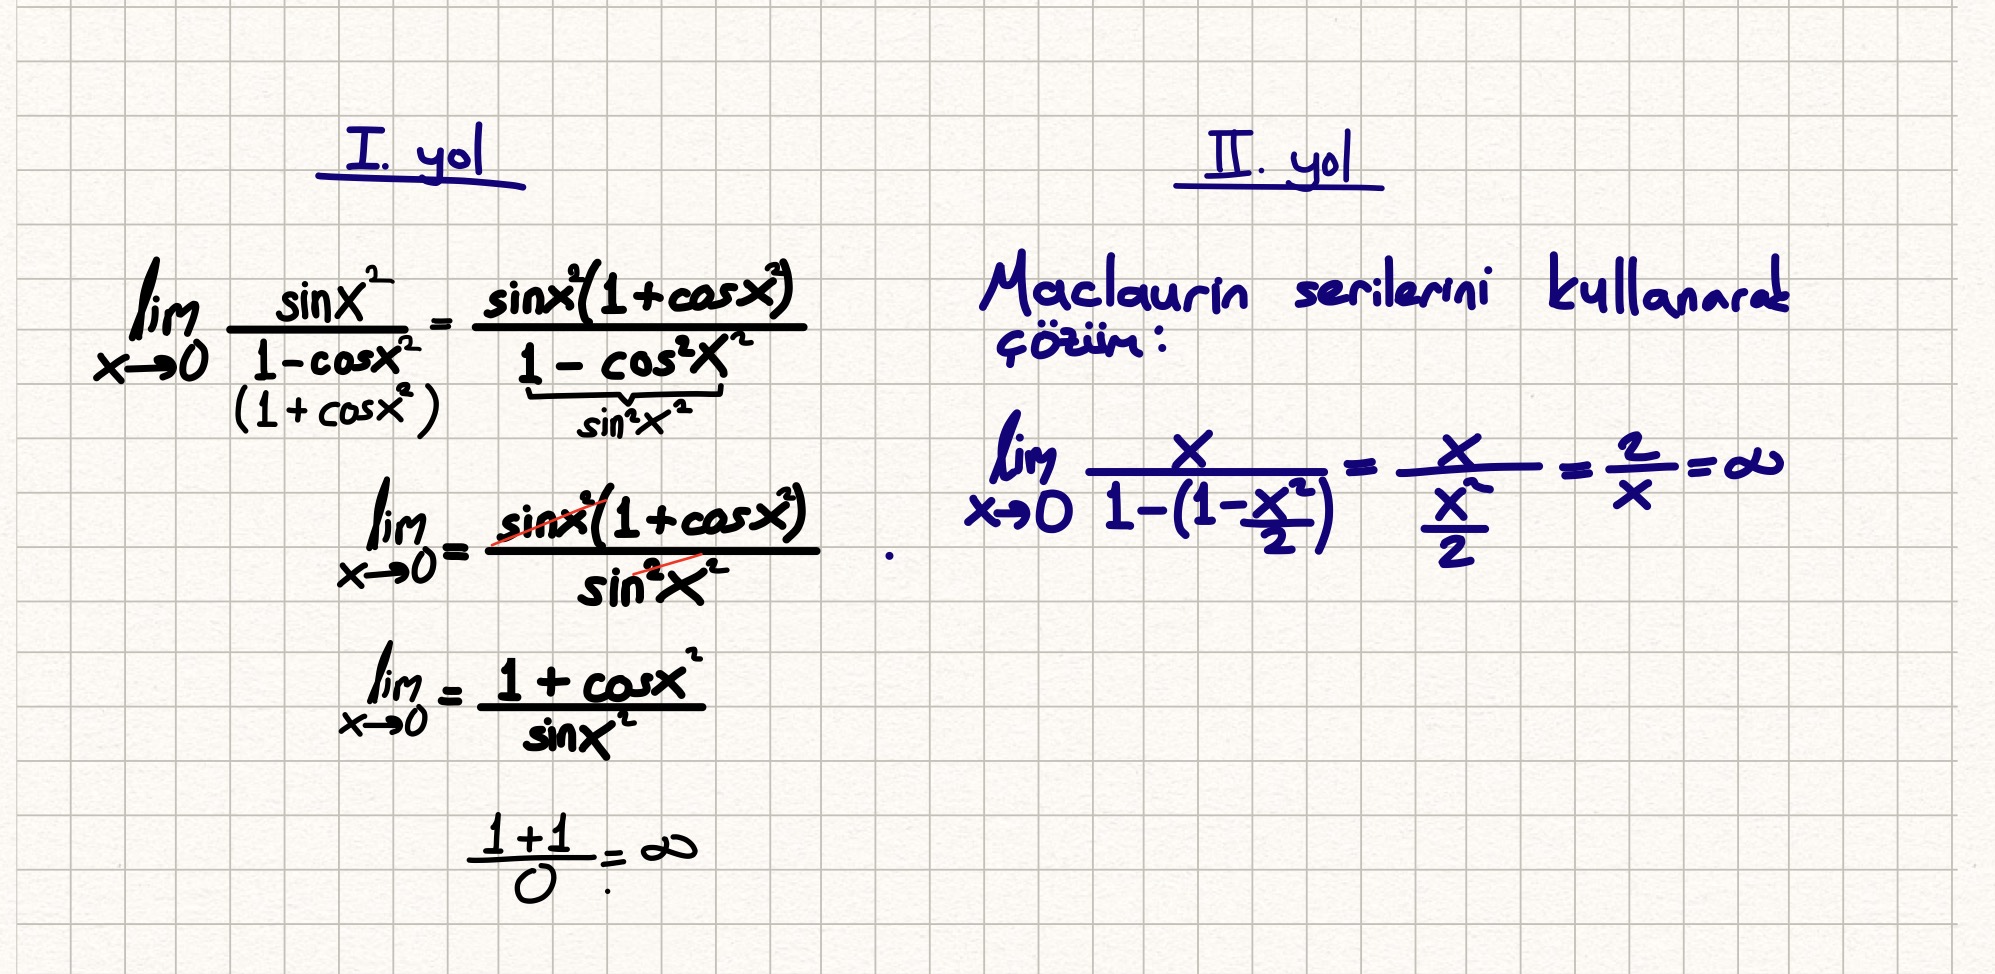 I. yol
lim x→0 sinx² / 1-cosx² (1 + cosx²) = sinx²(1+cosx²) / 1 - cos²x² sin²x²
lim x→0 = sinx²(1+cosx²) / sin²x²
lim x→0 = 1 + cosx² / sinx²
1+1 / 0 = ∞
II. yol
Maclaurin serilerini kullanarak
çözüm:
lim x→0 x / 1-(1-x²/2) = x / x²/2 = 2/x = ∞